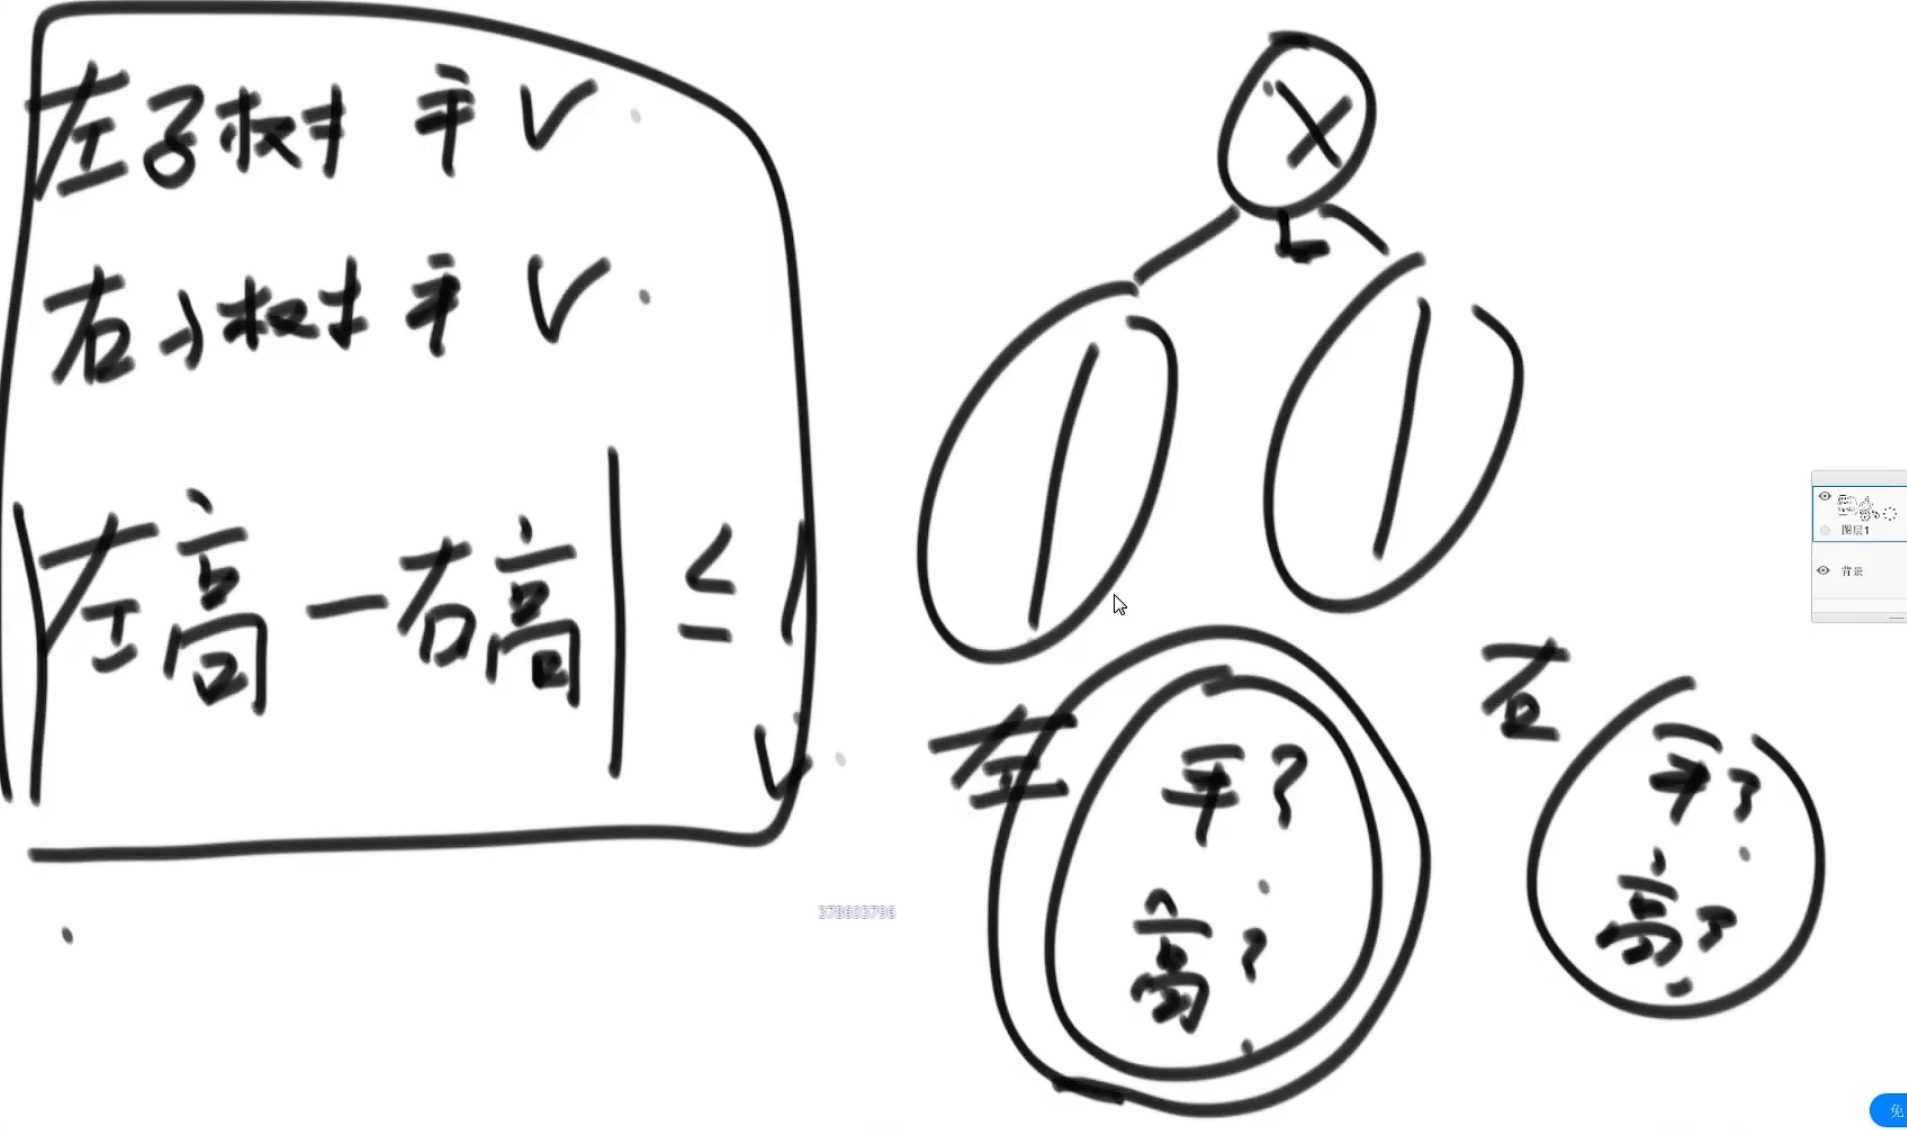 左子树 平 ✓
右子树 平 ✓
|左高 — 右高| ≤ 1
✓
X
左
平?
高?
右
平?
高?
378603796
图层1
背景
免